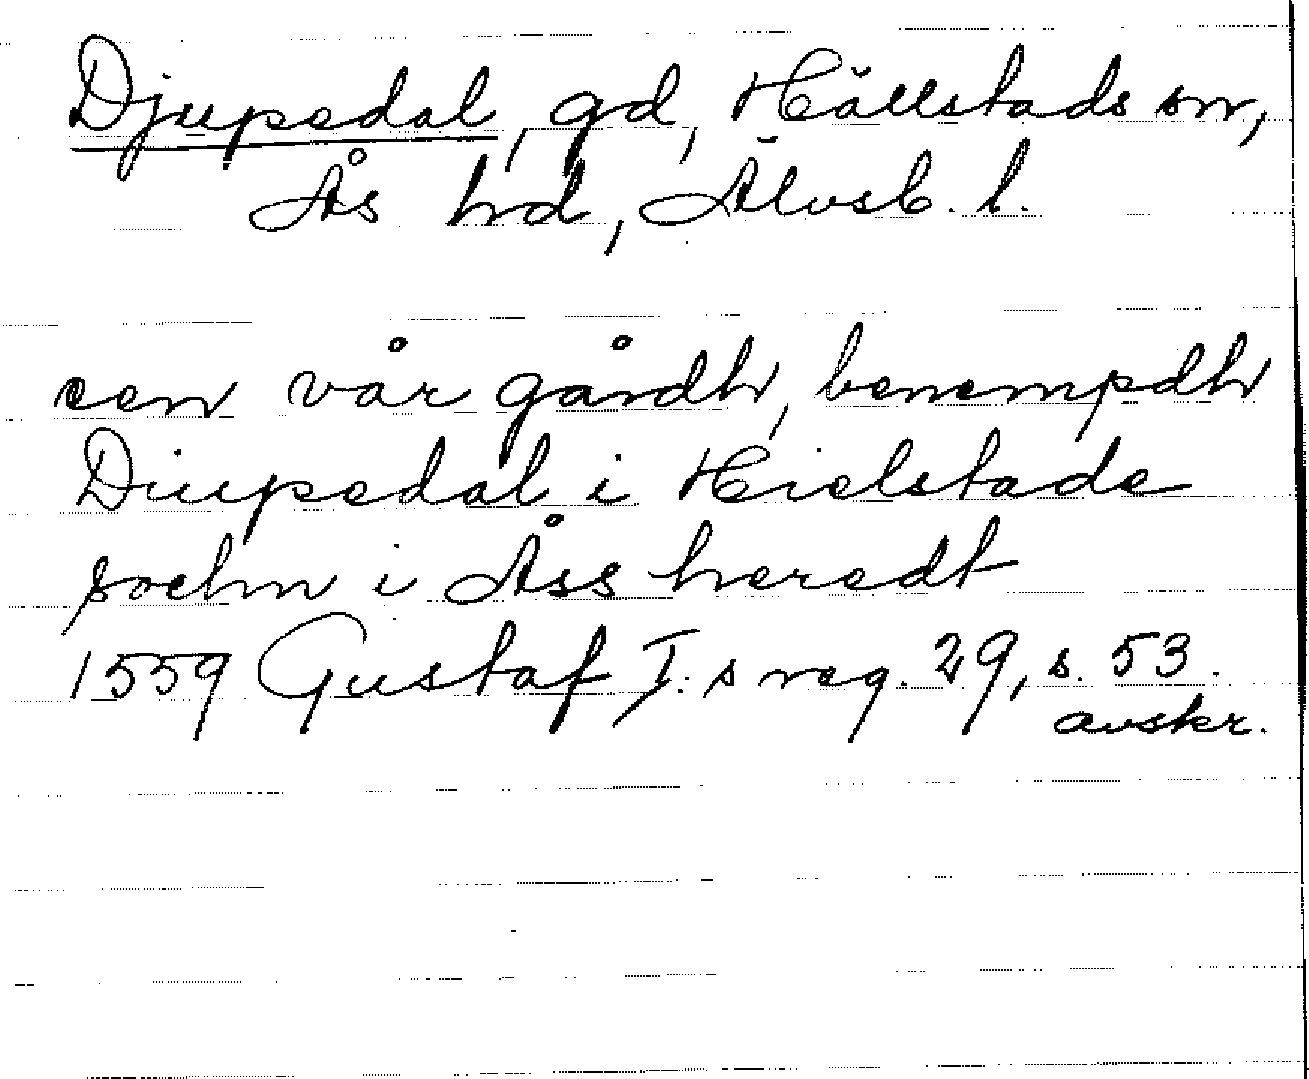 Djupedal, gd, Hällstads sn,
Ås hd, Älvsb. l.
een vår gårdh, benempdh
Diupedal i Hielstade
sochn i Åss heredt
1559 Gustaf I:s reg. 29, s. 53.
avskr.